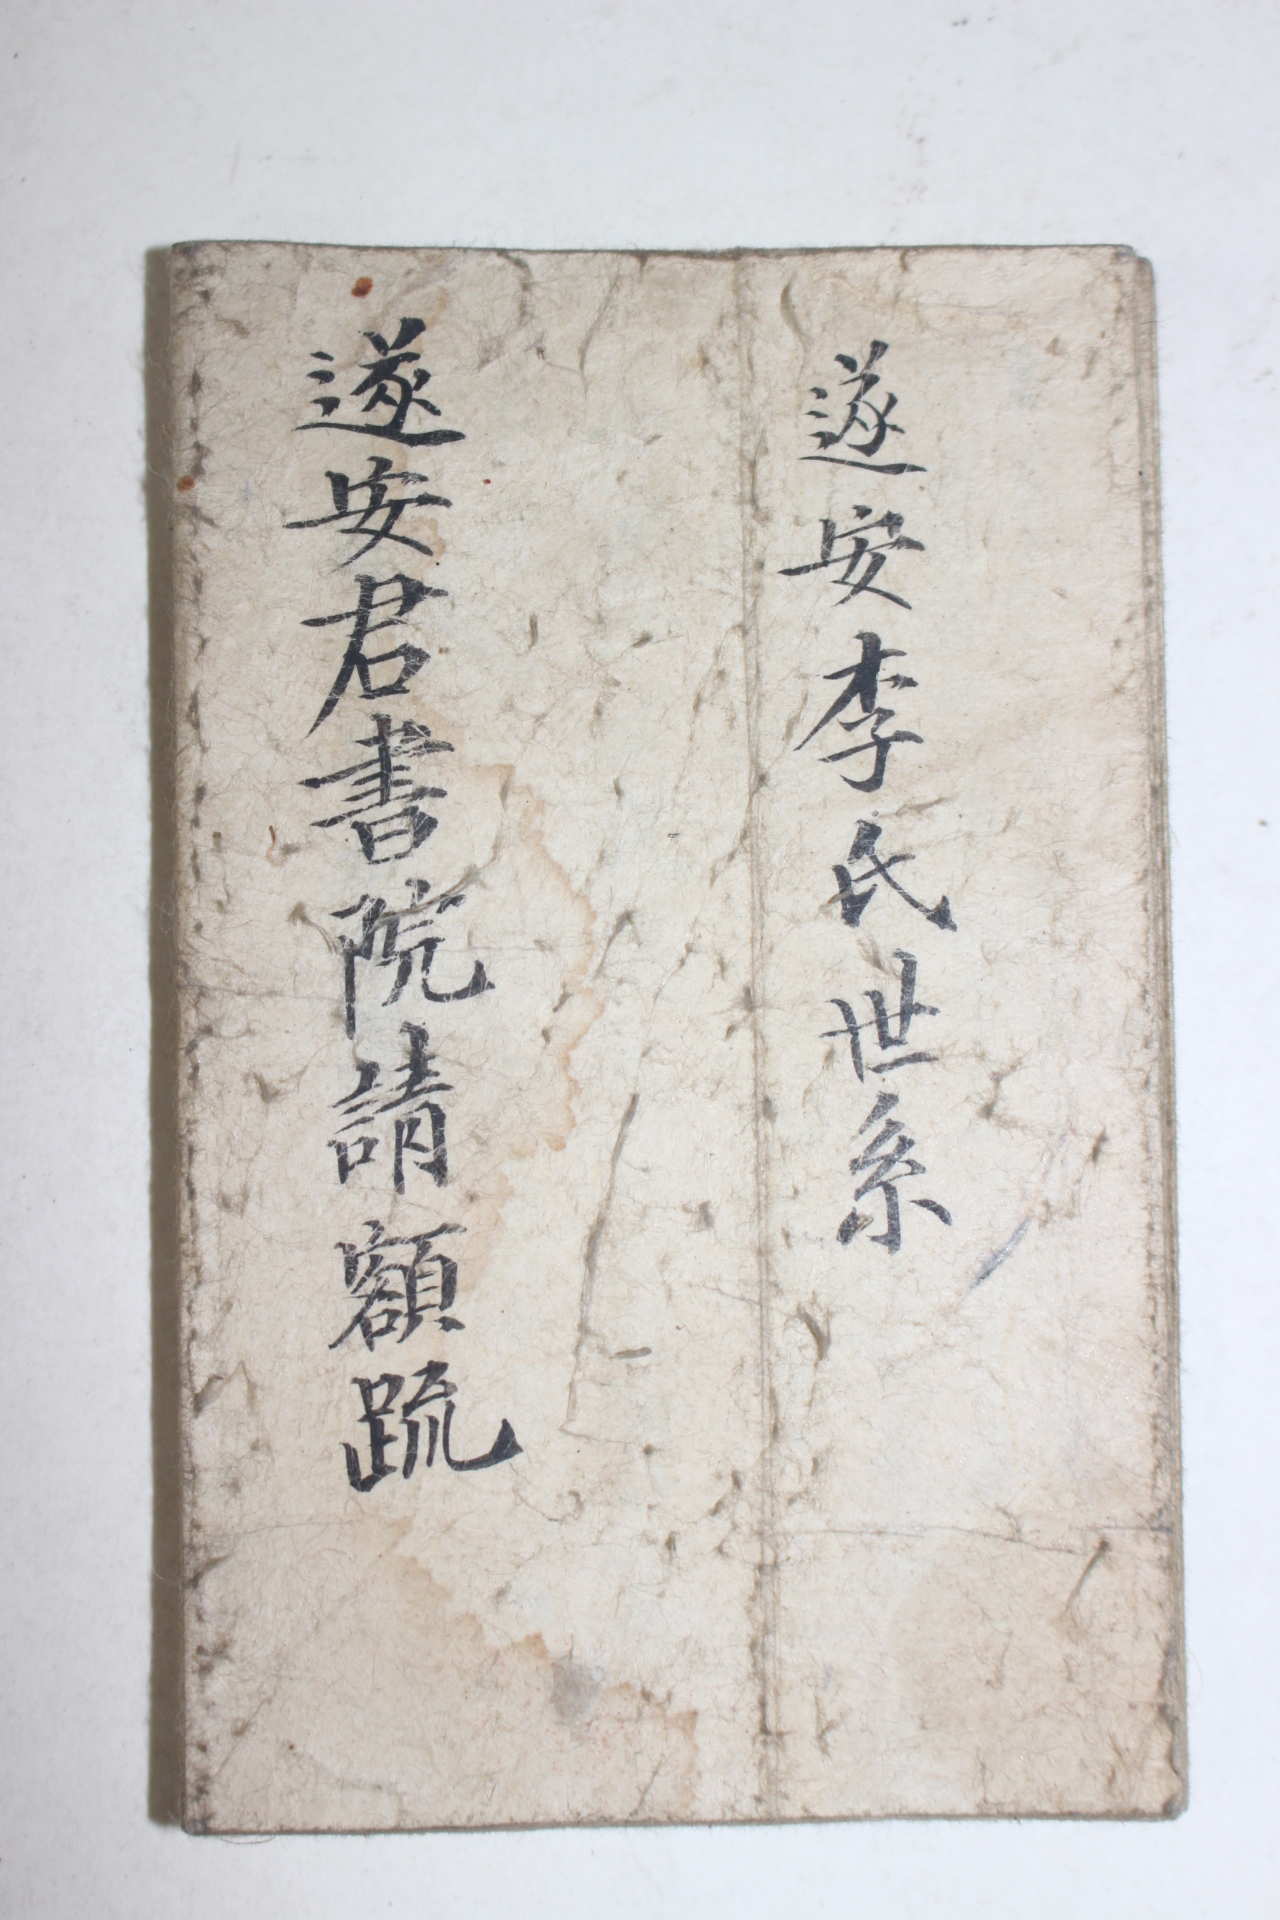 遂安李氏世系
遂安君書院請額䟽